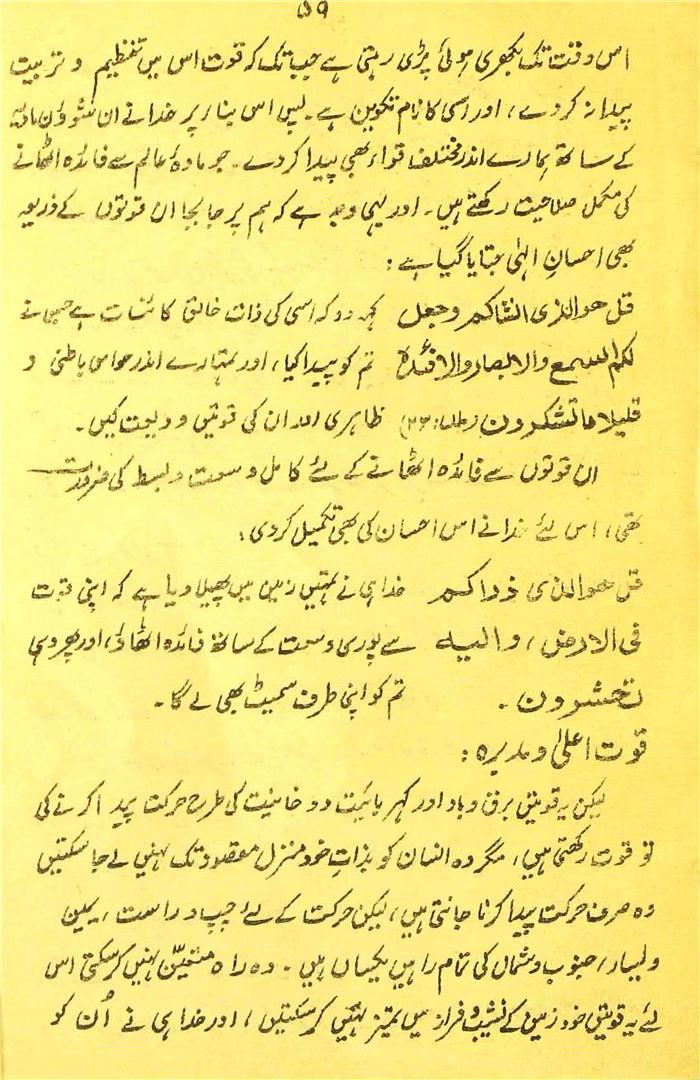 ۵۹
اس وقت تک بکھری ہوئی پڑی رہتی ہے جب تک کہ قوت اس میں تنظیم و تربیت
پیدا نہ کردے، اور اسی کا نام تکوین ہے۔ پس اس بناء پر خدا نے ان شئوون مادیہ
کے ساتھ ہمارے اندر مختلف قواء بھی پیدا کردے۔ جو مادہ عالم سے فائدہ اٹھانے
کی مکمل صلاحیت رکھتے ہیں۔ اور یہی وجہ ہے کہ ہم پر جا بجا ان قوتوں کے ذریعہ
بھی احسانِ الٰہی جتایا گیا ہے:
قل ھوالذی انشاکم وجعل کہہ دو کہ اسی کی ذات خالق کائنات ہے جس نے
لکم السمع والابصار والافئدہ تم کو پیدا کیا، اور تمہارے اندر حواس باطنی و
قلیلا ماتشکرون ظاہری اور ان کی قوتیں ودیعت کیں۔
ان قوتوں سے فائدہ اٹھانے کے لئے کامل وسعت و بسط کی ضرورت
تھی، اس لئے خدا نے اس احسان کی بھی تکمیل کردی:
قل ھوالذی ذراکم خدا ہی نے تمہیں زمین میں پھیلا دیا ہے کہ اپنی قوت
فی الارض، والیہ سے پوری وسعت کے ساتھ فائدہ اٹھاؤ، اور پھر وہی
تحشرون۔ تم کو اپنی طرف سمیٹ بھی لے گا۔
قوت اعلیٰ و مدبرہ:
لیکن یہ قوتیں برق و باد اور کہربائیت و دخانیت کی طرح حرکت پیدا کرنے کی
تو قوت رکھتی ہیں، مگر وہ انسان کو بذاتِ خود منزل مقصود تک نہیں لے جا سکتیں
وہ صرف حرکت پیدا کرنا جانتی ہیں، لیکن حرکت کے لئے چپ و راست، یمین
و یسار، جنوب و شمال کی تمام راہیں یکساں ہیں۔ وہ راہ متعیّن نہیں کرسکتی اس
لئے یہ قوتیں خود زمین کے نشیب و فراز میں تمیز نہیں کرسکتیں، اور خدا ہی نے اُن کو